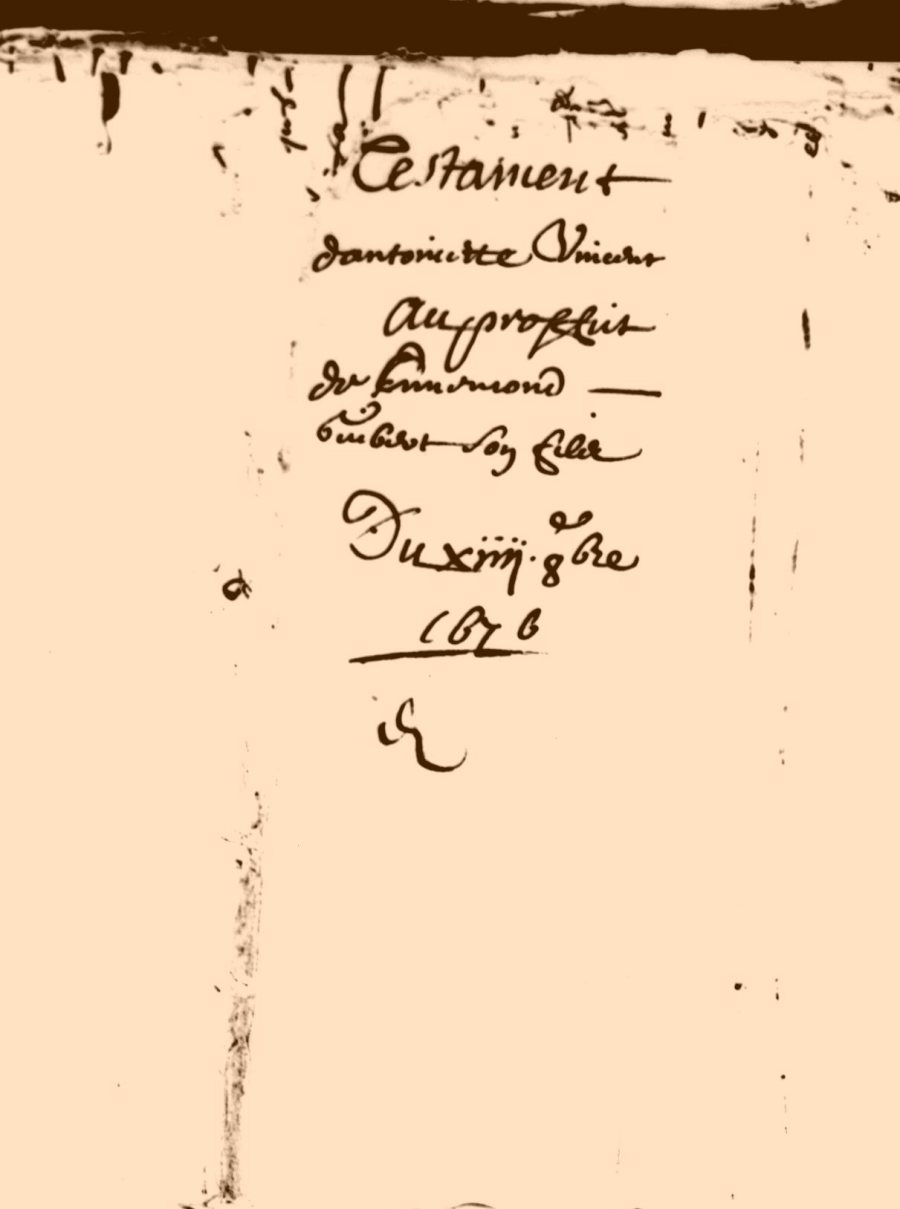 Testament
dantoinette Vincent
Au proffict
de Ennemond
Guibert son filz
Du xiiii. 8bre
1676